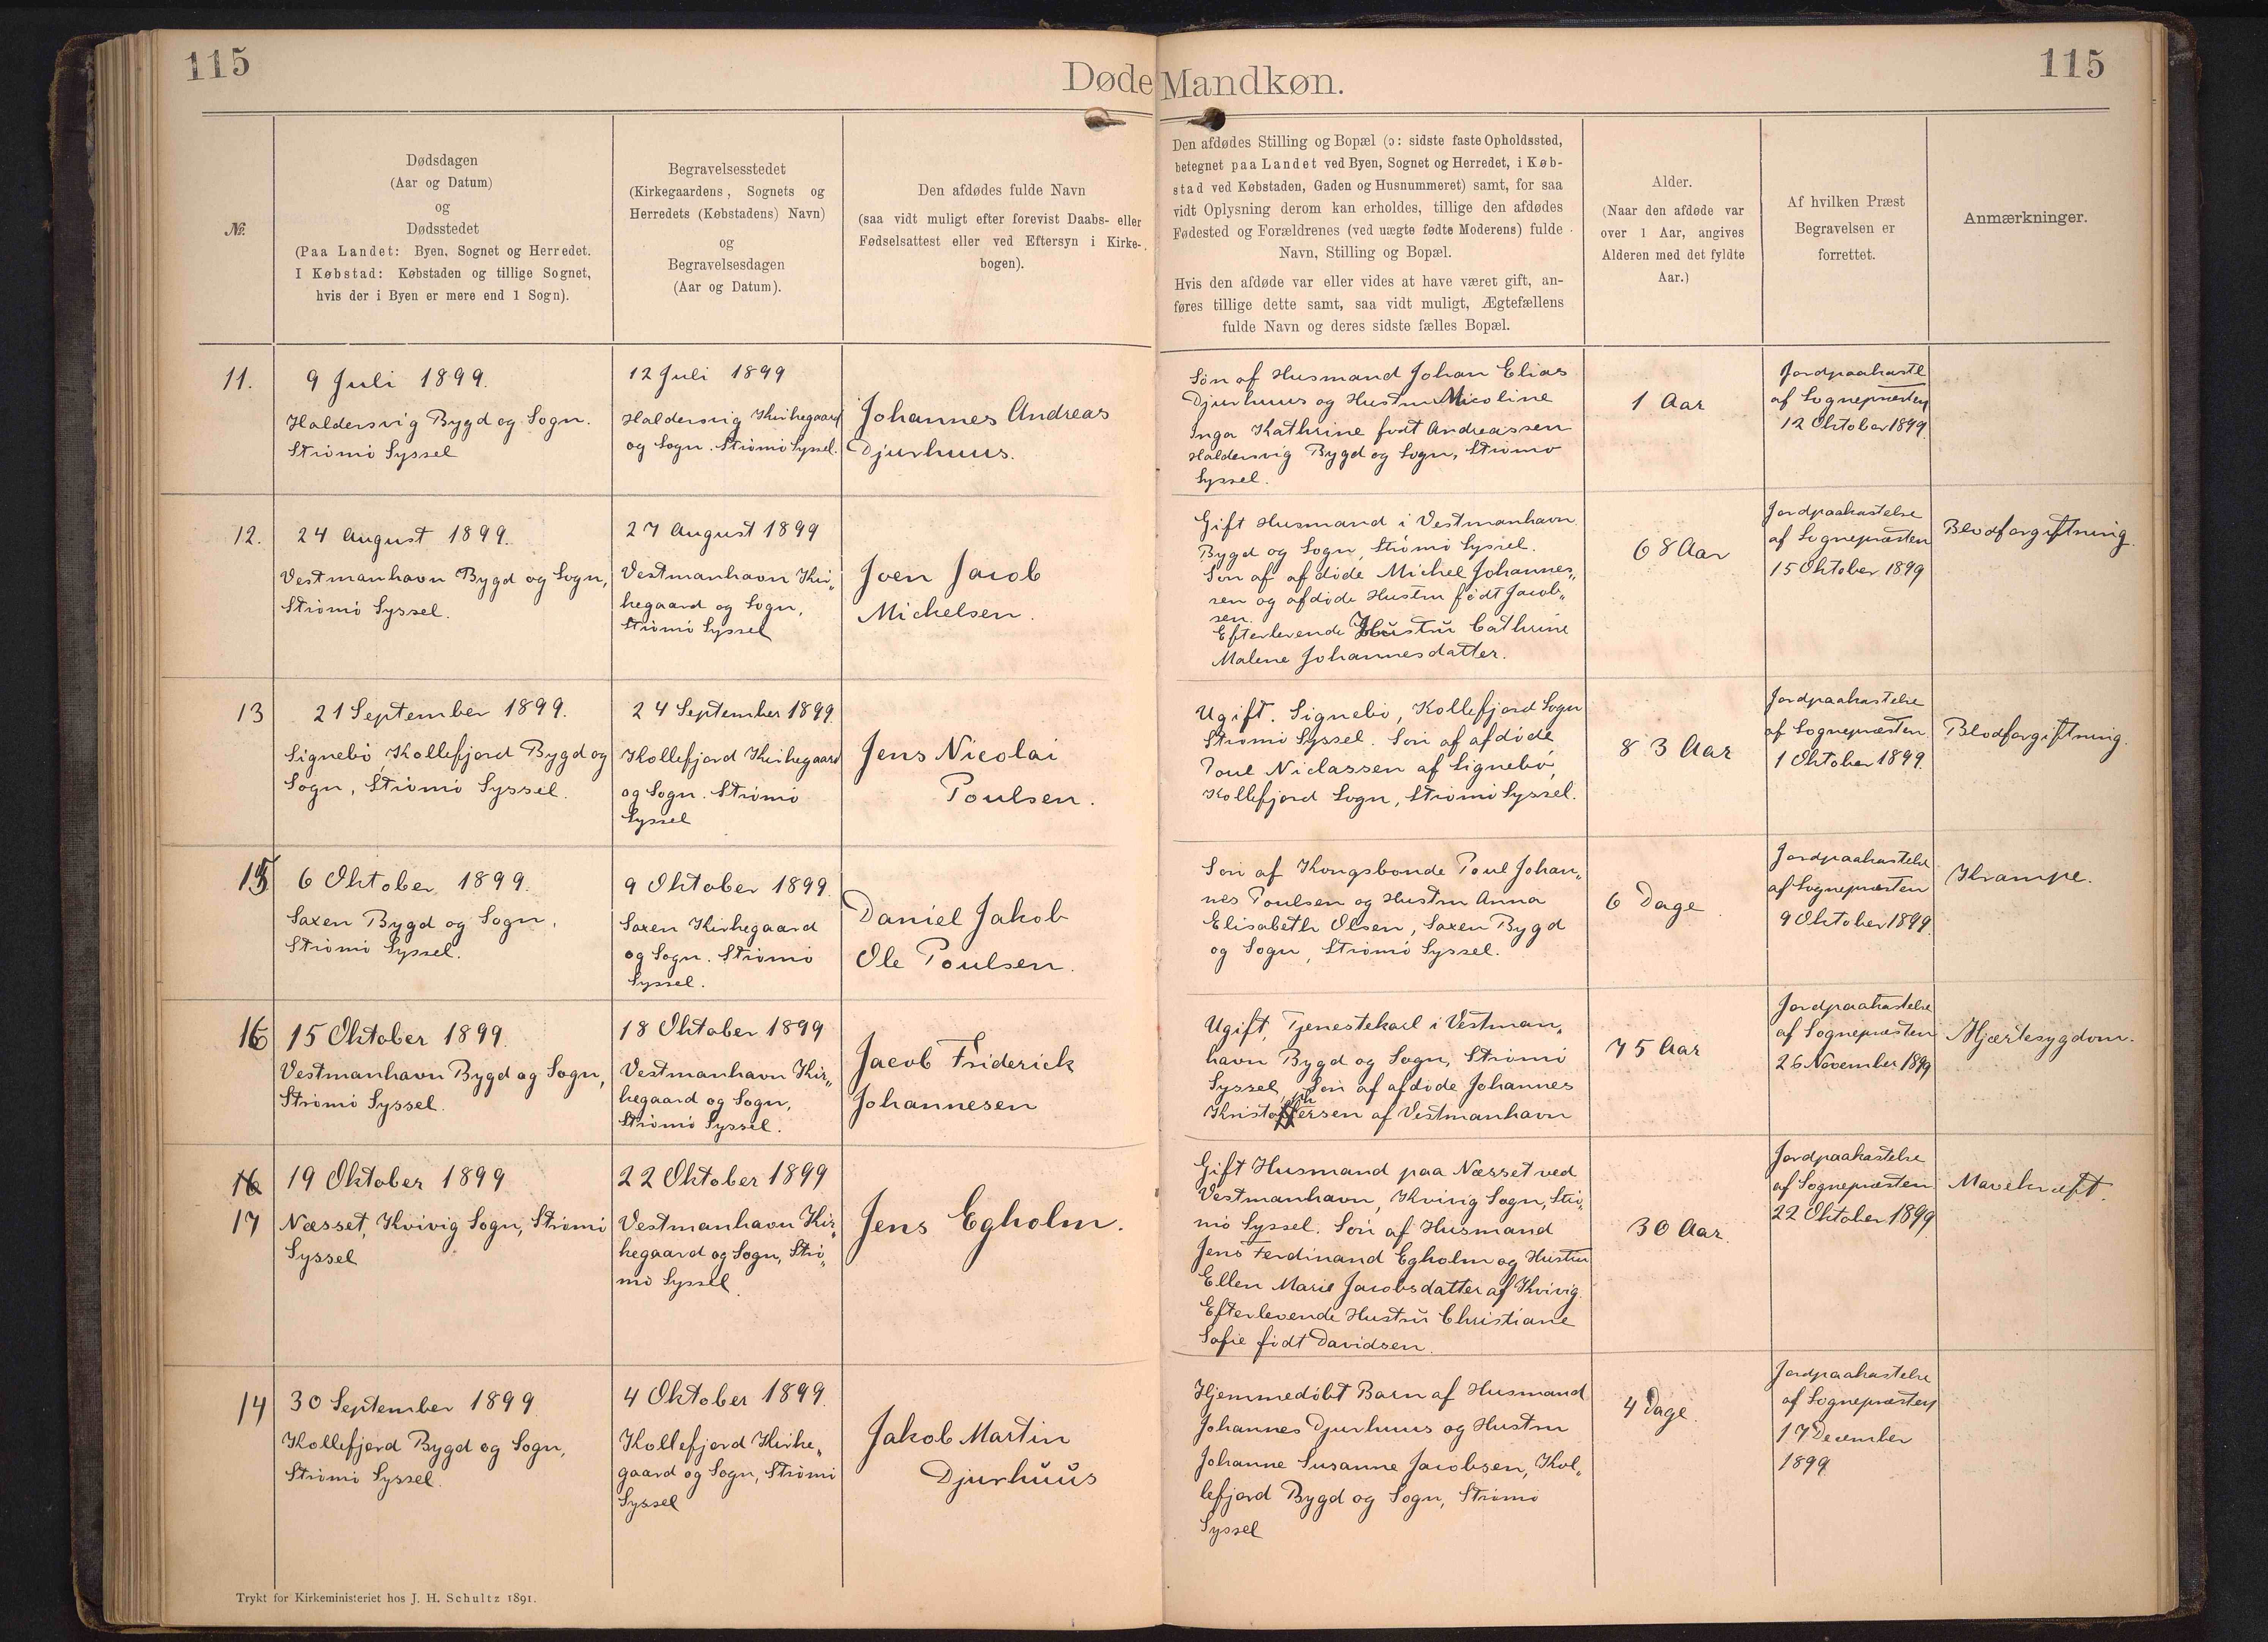 115
Døde Mandkøn.
115
№.
Dødsdagen
(Aar og Datum)
og
Dødsstedet
(Paa Landet: Byen, Sognet og Herredet.
I Købstad: Købstaden og tillige Sognet,
hvis der i Byen er mere end 1 Sogn).
Begravelsesstedet
(Kirkegaardens, Sognets og
Herredets (Købstadens) Navn)
og
Begravelsesdagen
(Aar og Datum).
Den afdødes fulde Navn
(saa vidt muligt efter forevist Daabs- eller
Fødselsattest eller ved Eftersyn i Kirke-
bogen).
Den afdødes Stilling og Bopæl (ɔ: sidste faste Opholdssted,
betegnet paa Landet ved Byen, Sognet og Herredet, i Køb-
stad ved Købstaden, Gaden og Husnummeret) samt, for saa
vidt Oplysning derom kan erholdes, tillige den afdødes
Fødested og Forældrenes (ved uægte fødte Moderens) fulde
Navn, Stilling og Bopæl.
Hvis den afdøde var eller vides at have været gift, an-
føres tillige dette samt, saa vidt muligt, Ægtefællens
fulde Navn og deres sidste fælles Bopæl.
Alder.
(Naar den afdøde var
over 1 Aar, angives
Alderen med det fyldte
Aar.)
Af hvilken Præst
Begravelsen er
forrettet.
Anmærkninger.
11.
9 Juli 1899.
Haldersvig Bygd og Sogn.
Strömö Syssel
12 Juli 1899
Haldersvig Kirkegaard
og Sogn. Strömö Syssel.
Johannes Andreas
Djurhuus.
Sön af Husmand Johan Elias
Djurhuus og Hustru Nicoline
Inga Kathrine født Andreassen
Haldersvig Bygd og Sogn, Strömö
Syssel.
1 Aar
Jordpaakastl
af Sognepræsten
12 Oktober 1899.
12.
24 August 1899.
Vestmanhavn Bygd og Sogn,
Strömö Syssel.
27 August 1899
Vestmanhavn Kir„
kegaard og Sogn,
Strömö Syssel
Joen Jacob
Michelsen.
Gift Husmand i Vestmanhavn
Bygd og Sogn, Strömö Syssel.
Sön af afdöde Michel Johannes„
sen og afdöde Hustru födt Jacob„
sen.
Efterlevende Hustrü Cathrine
Malene Johannesdatter.
68 Aar
Jordpaakastelse
af Sognepræsten
15 Oktober 1899
Blodforgiftning.
13
21 September 1899.
Signebö, Kollefjord Bygd og
Sogn, Strömö Syssel.
24 September 1899.
Kollefjord Kirkegaard
og Sogn. Strömö
Syssel
Jens Nicolai
Poulsen.
Ugift. Signebö, Kollefjord Sogn
Strömö Syssel. Sön af afdöde
Poul Niclassen af Signebö,
Kollefjord Sogn, Strömö Syssel.
83 Aar
Jordpaakastelse
af Sognepræsten
1 Oktober 1899.
Blodforgiftning.
15
6 Oktober 1899.
Saxen Bygd og Sogn,
Strömö Syssel.
9 Oktober 1899.
Saxen Kirkegaard
og Sogn. Strömö
Syssel.
Daniel Jakob
Ole Poulsen.
Sön af Kongsbonde Poul Johan„
nes Poulsen og Hustru Anna
Elisabeth Olsen, Saxen Bygd
og Sogn, Strömö Syssel.
6 Dage.
Jordpaakastelse
af Sognepræsten
9 Oktober 1899.
Krampe.
16
15 Oktober 1899.
Vestmanhavn Bygd og Sogn,
Strömö Syssel.
18 Oktober 1899
Vestmanhavn Kir„
kegaard og Sogn,
Strömö Syssel.
Jacob Friderick
Johannesen
Ugift, Tjenestekarl i Vestman„
havn Bygd og Sogn, Strömö
Syssel, Sön af afdöde Johannes
Kristophersen af Vestmanhavn
75 Aar
Jordpaakastelse
af Sognepræsten
26 November 1899
Hjærtesygdom.
16
17
19 Oktober 1899
Næsset, Kvivig Sogn, Strömö
Syssel
22 Oktober 1899
Vestmanhavn Kir„
kegaard og Sogn, Strö„
mö Syssel.
Jens Egholm.
Gift Husmand paa Næsset ved
Vestmanhavn, Kvivig Sogn, Strö„
mö Syssel. Sön af Husmand
Jens Ferdinand Egholm og Hustru
Ellen Marie Jacobsdatter af Kvivig.
Efterlevende Hustrü Christiane
Sofie födt Davidsen.
30 Aar.
Jordpaakastelse
af Sognepræsten
22 Oktober 1899
Mavekræft.
14
30 September 1899
Kollefjord Bygd og Sogn,
Strömö Syssel.
4 Oktober 1899.
Kollefjord Kirke„
gaard og Sogn, Strömö
Syssel
Jakob Martin
Djurhüüs
Hjemmedöbt Barn af Husmand
Johannes Djurhuus og Hustru
Johanne Susanne Jacobsen, Kol„
lefjord Bygd og Sogn, Strömö
Syssel
4 Dage.
Jordpaakastelse
af Sognepræsten
17 December
1899
Trykt for Kirkeministeriet hos J. H. Schultz 1891.